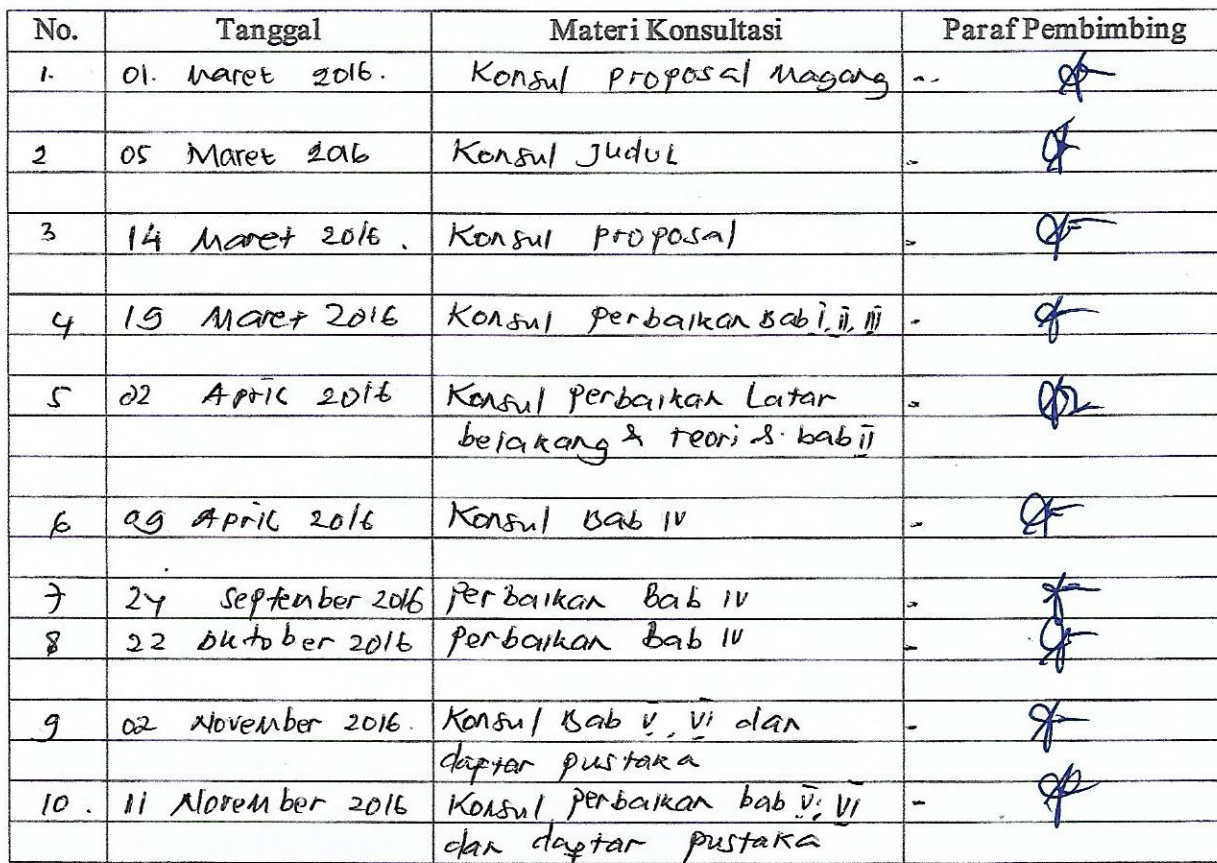 No. Tanggal Materi Konsultasi Paraf Pembimbing
1. 01. Maret 2016. Konsul proposal Magang
2 05 Maret 2016 Konsul Judul
3 14 Maret 2016. Konsul proposal
4 19 Maret 2016 Konsul perbaikan Bab I, II, III
5 02 April 2016 Konsul perbaikan Latar
belakang & teori &. bab II
6 09 April 2016 Konsul Bab IV
7 24 September 2016 perbaikan Bab IV
8 22 Oktober 2016 perbaikan Bab IV
9 02 November 2016. Konsul Bab V, VI dan
daftar pustaka
10. 11 November 2016 Konsul perbaikan bab V, VI
dan daftar pustaka